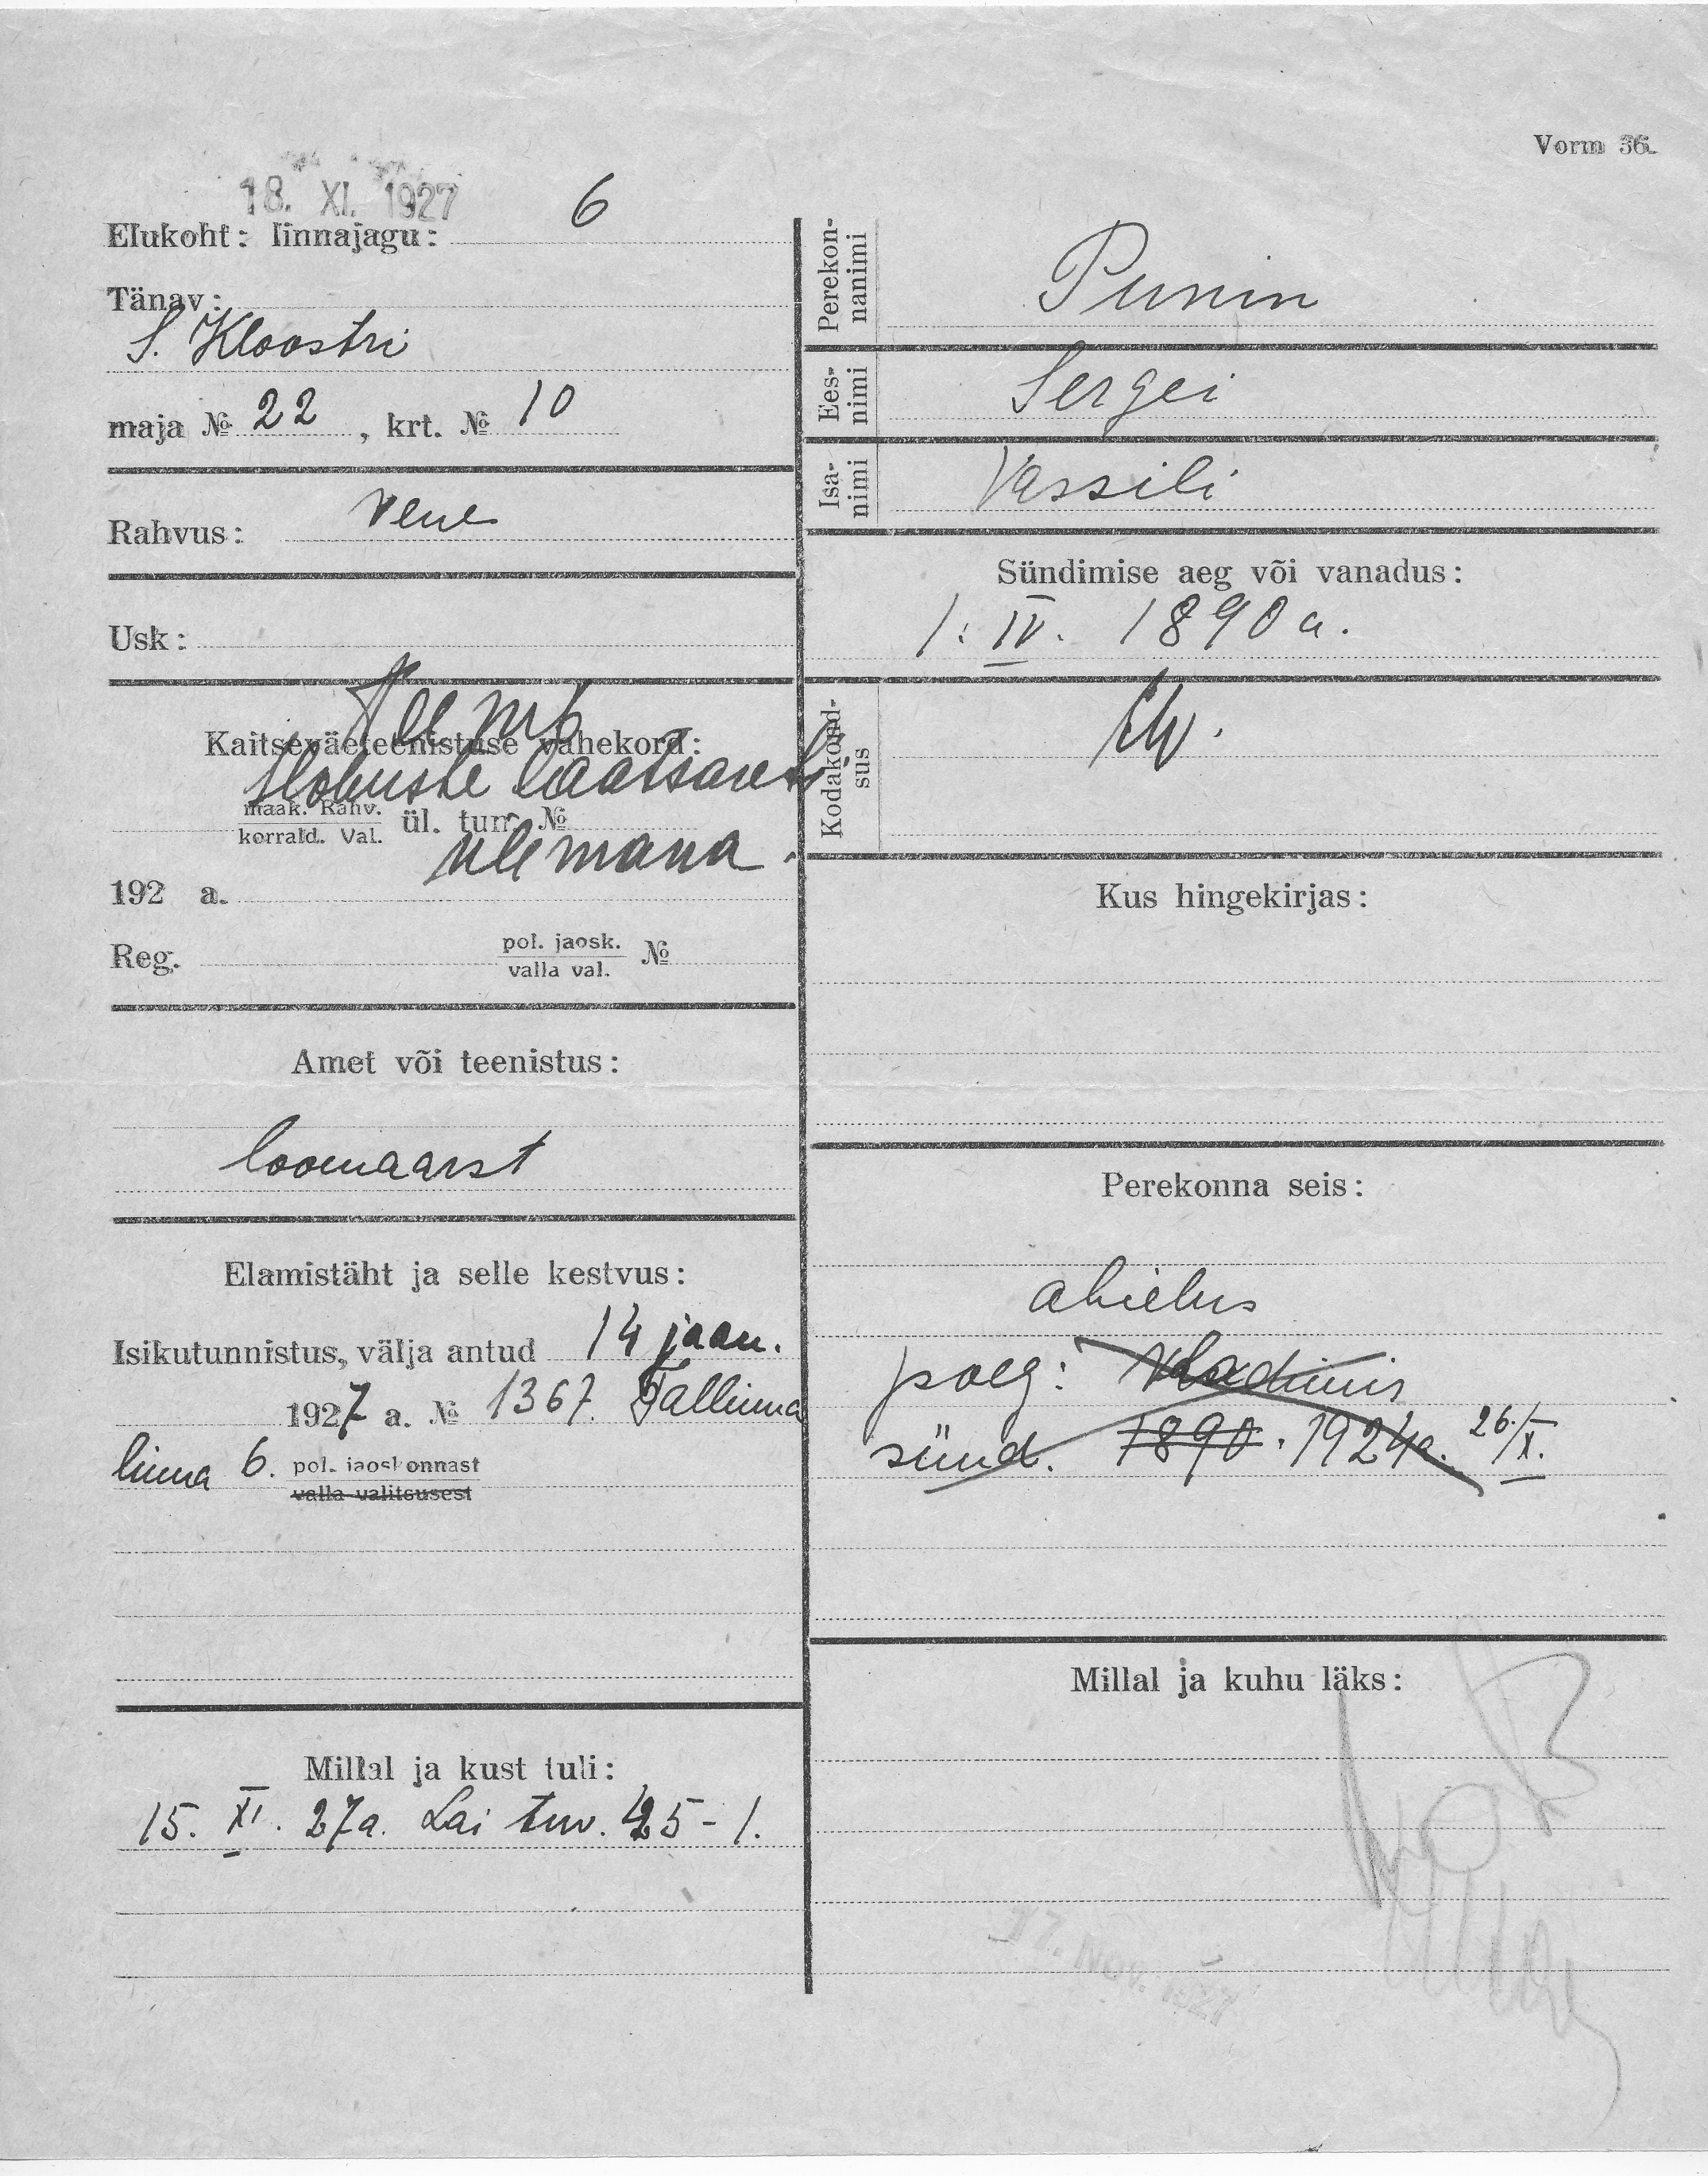 Vorm 36.
18. XI. 1927
Elukoht: linnajagu: 6
Tänav:
S. Kloostri
maja № 22, krt. № 10
Rahvus: vene
Usk:
Kaitseväeteenistuse vahekord:
Hobuste laatsareti
maak. Rahv.
korrald. Val. ül. tun. №
ülemana.
192 a.
Reg. pol. jaosk.
valla val. №
Amet või teenistus:
loomaarst
Elamistäht ja selle kestvus:
Isikutunnistus, välja antud 14 jaan.
1927 a. № 1367. Tallinna
linna 6. pol. jaoskonnast
valla valitsusest
Millal ja kust tuli:
15. XI. 27a. Lai tän. 45-1.
Perekon-
nanimi Punin
Ees-
nimi Sergei
Isa-
nimi Vassili
Sündimise aeg või vanadus:
1. IV. 1890 a.
Kodakond-
sus
Kus hingekirjas:
Perekonna seis:
abielus
poeg: Vladimir
sünd. 1890. 1924a. 26/X.
Millal ja kuhu läks:
17. NOV. 1927